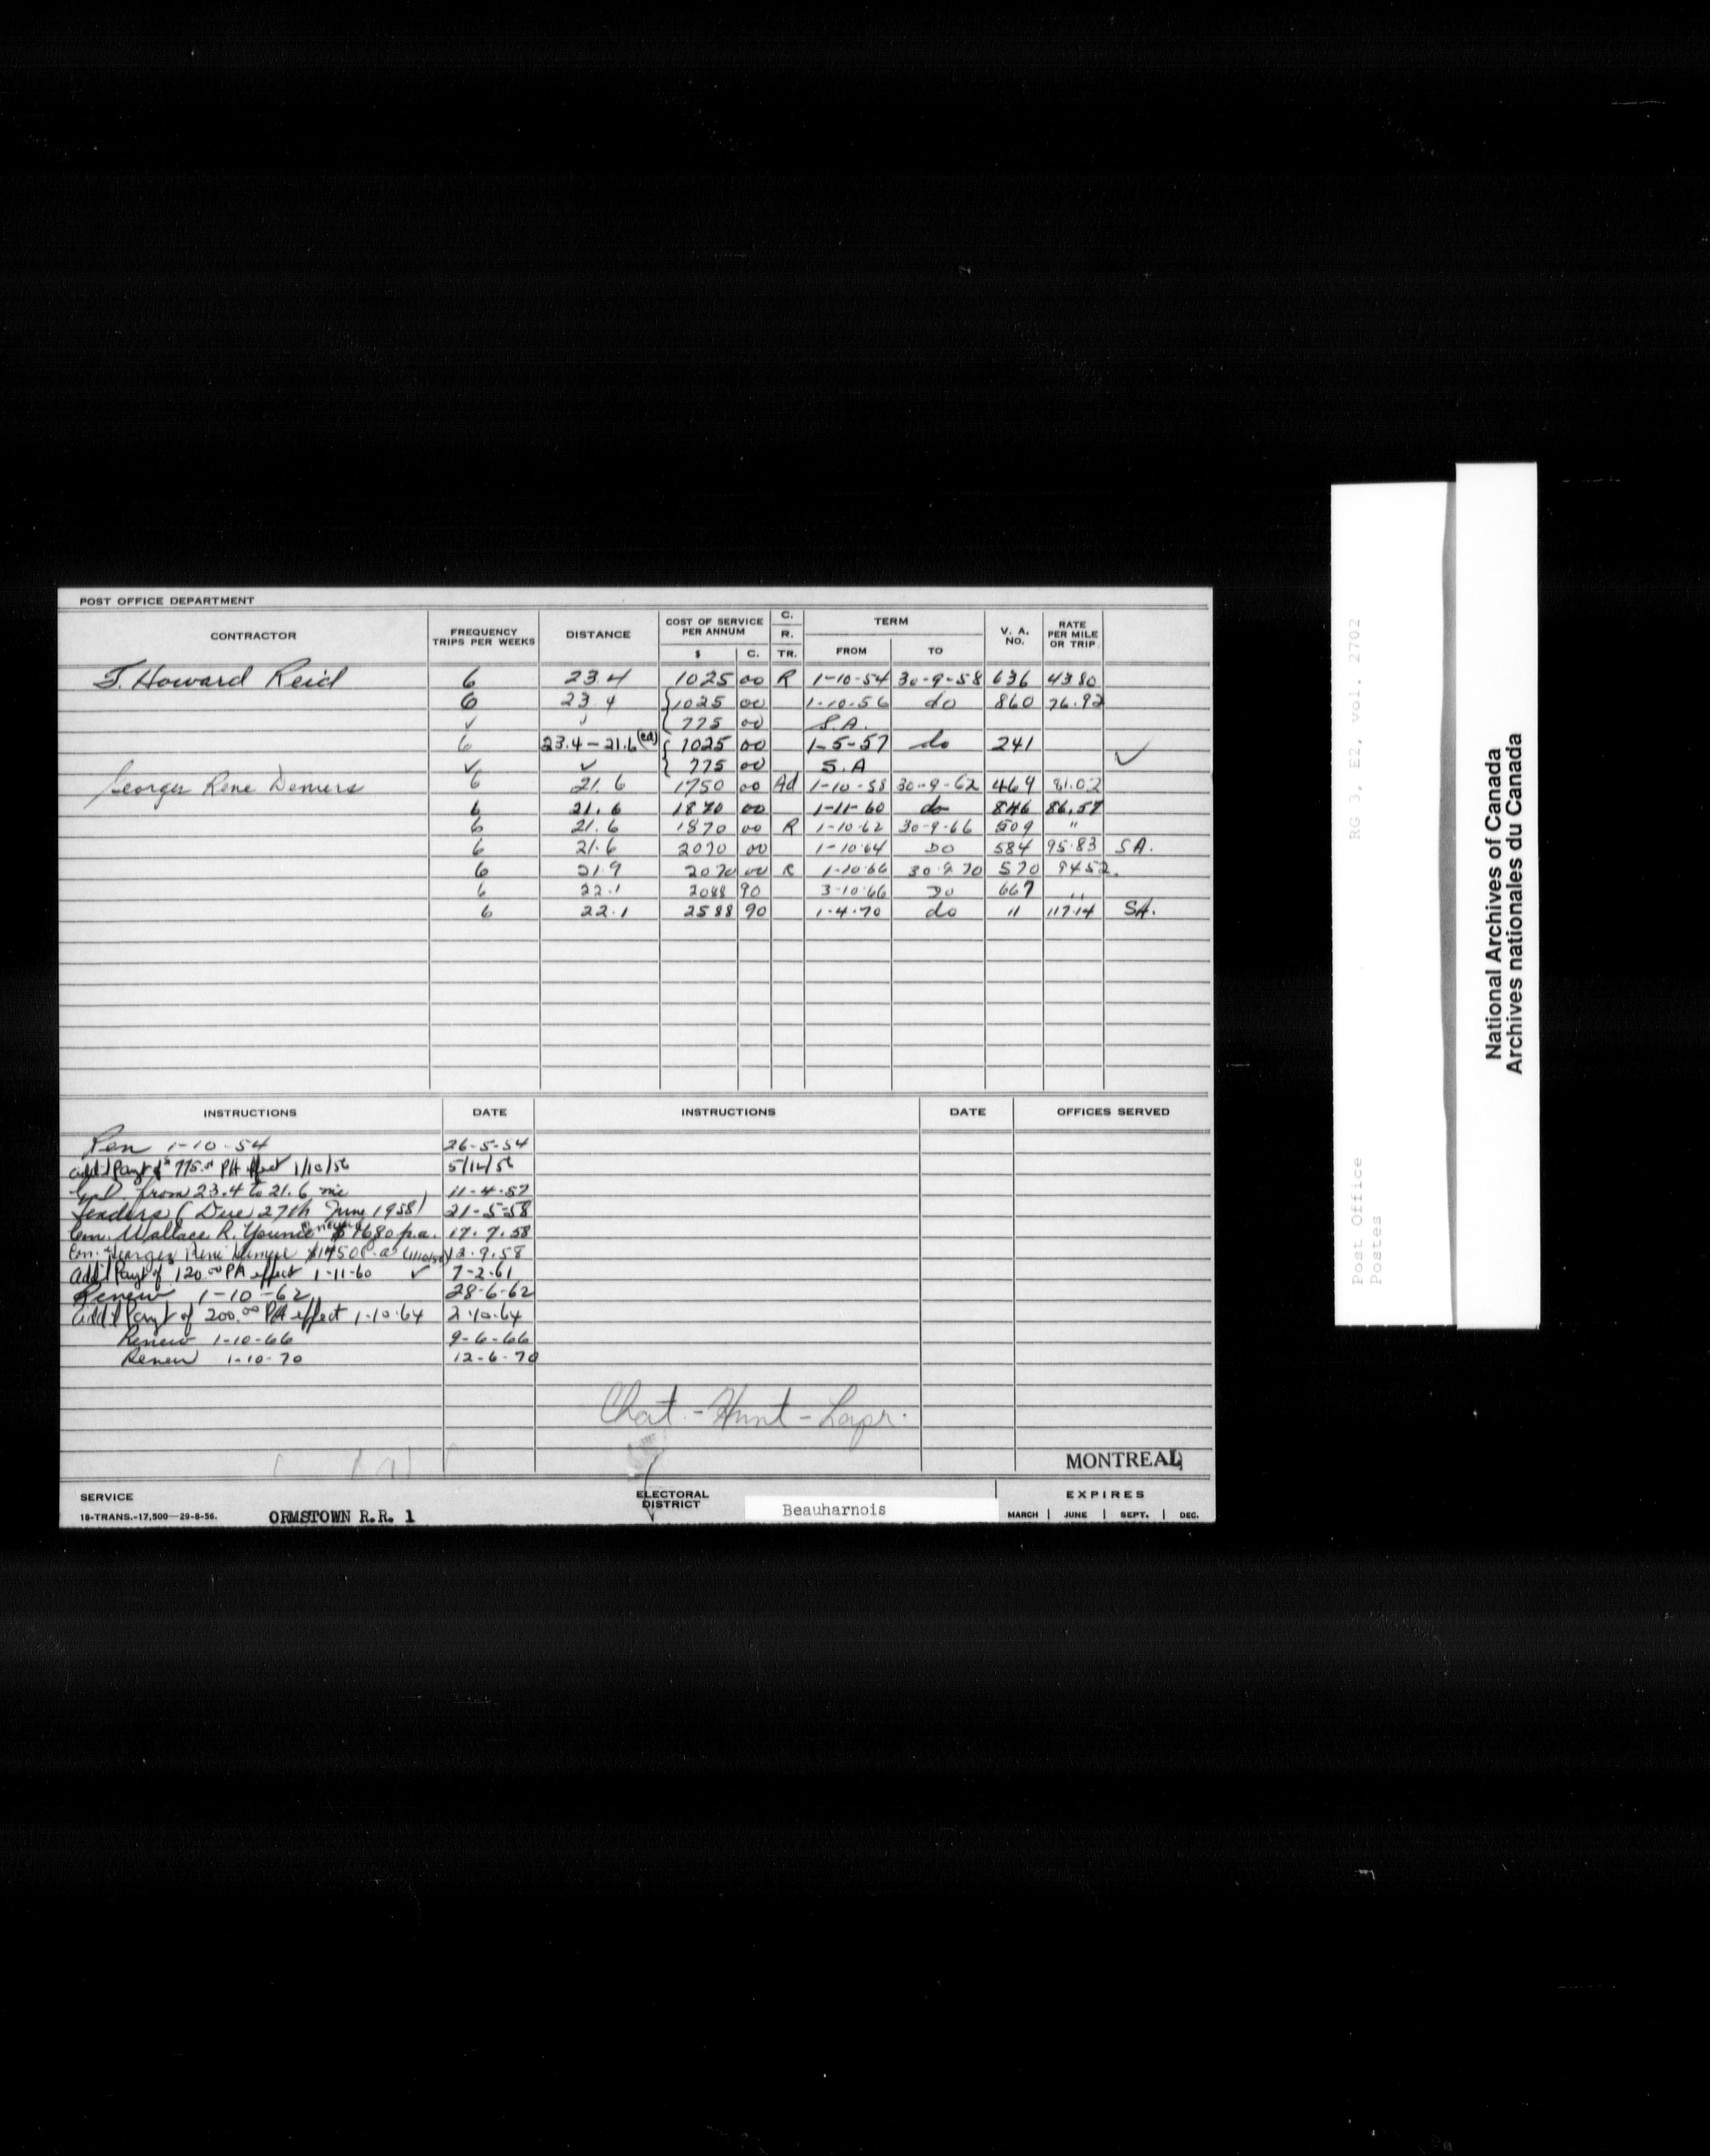 POST OFFICE DEPARTMENT
CONTRACTOR FREQUENCY TRIPS PER WEEKS DISTANCE COST OF SERVICE PER ANNUM $ C. C. R. TR. TERM FROM TO V. A. NO. RATE PER MILE OR TRIP
J. Howard Reid 6 23.4 1025 00 R 1-10-54 30-9-58 636 43.80
6 23.4 1025 00 1-10-56 do 860 76.92
✓ ✓ 775 00 S.A.
6 23.4-21.6 (ed) 1025 00 1-5-57 do 241
✓ ✓ 775 00 S.A ✓
Georges Rene Demers 6 21.6 1750 00 Ad 1-10-58 30-9-62 469 81.02
6 21.6 1870 00 1-11-60 do 846 86.57
6 21.6 1870 00 R 1-10-62 30-9-66 509 "
6 21.6 2070 00 1-10-64 DO 584 95.83 SA.
6 21.9 2070 00 R 1-10-66 30-9-70 570 94.52
6 22.1 2088 90 3-10-66 Do 667 "
6 22.1 2588 90 1-4-70 do 11 117.14 SA.
INSTRUCTIONS DATE INSTRUCTIONS DATE OFFICES SERVED
Ren 1-10-54 26-5-54
Add'l Payt of $775.00 PA effect 1/10/56 5/12/56
from 23.4 to 21.6 mi 11-4-57
Tenders (Due 27th June 1958) 21-5-58
Con. Wallace R. Younie $1680 p.a. 17.7.58
Con. Georges Rene Demers $1750 p.a. (1/10/58) 12.9.58
Add'l Payt of 120.00 PA effect 1-11-60 ✓ 7-2-61
Renew 1-10-62 28-6-62
Add'l Payt of 200.00 PA effect 1-10-64 2-10-64
Renew 1-10-66 9-6-66
Renew 1-10-70 12-6-70
Chat.-Hunt-Lapr.
MONTREAL
SERVICE
18-TRANS.-17,500—29-8-56.
ORMSTOWN R.R. 1
ELECTORAL DISTRICT
Beauharnois
EXPIRES
MARCH | JUNE | SEPT. | DEC.
RG 3, E2, vol. 2702
Post Office
Postes
National Archives of Canada
Archives nationales du Canada